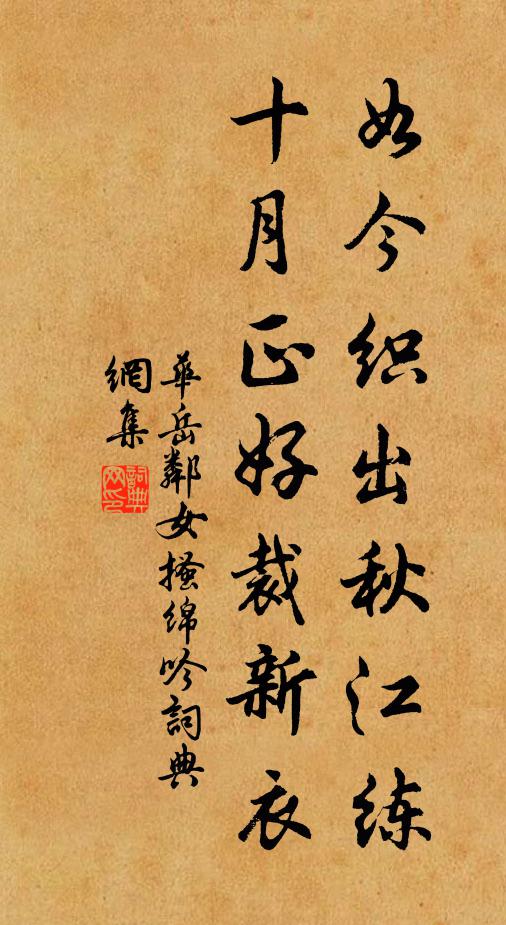 如今织出秋江练
十月正好裁新衣
華岳鄰女搔綿吟詞典
網集
詞典網印